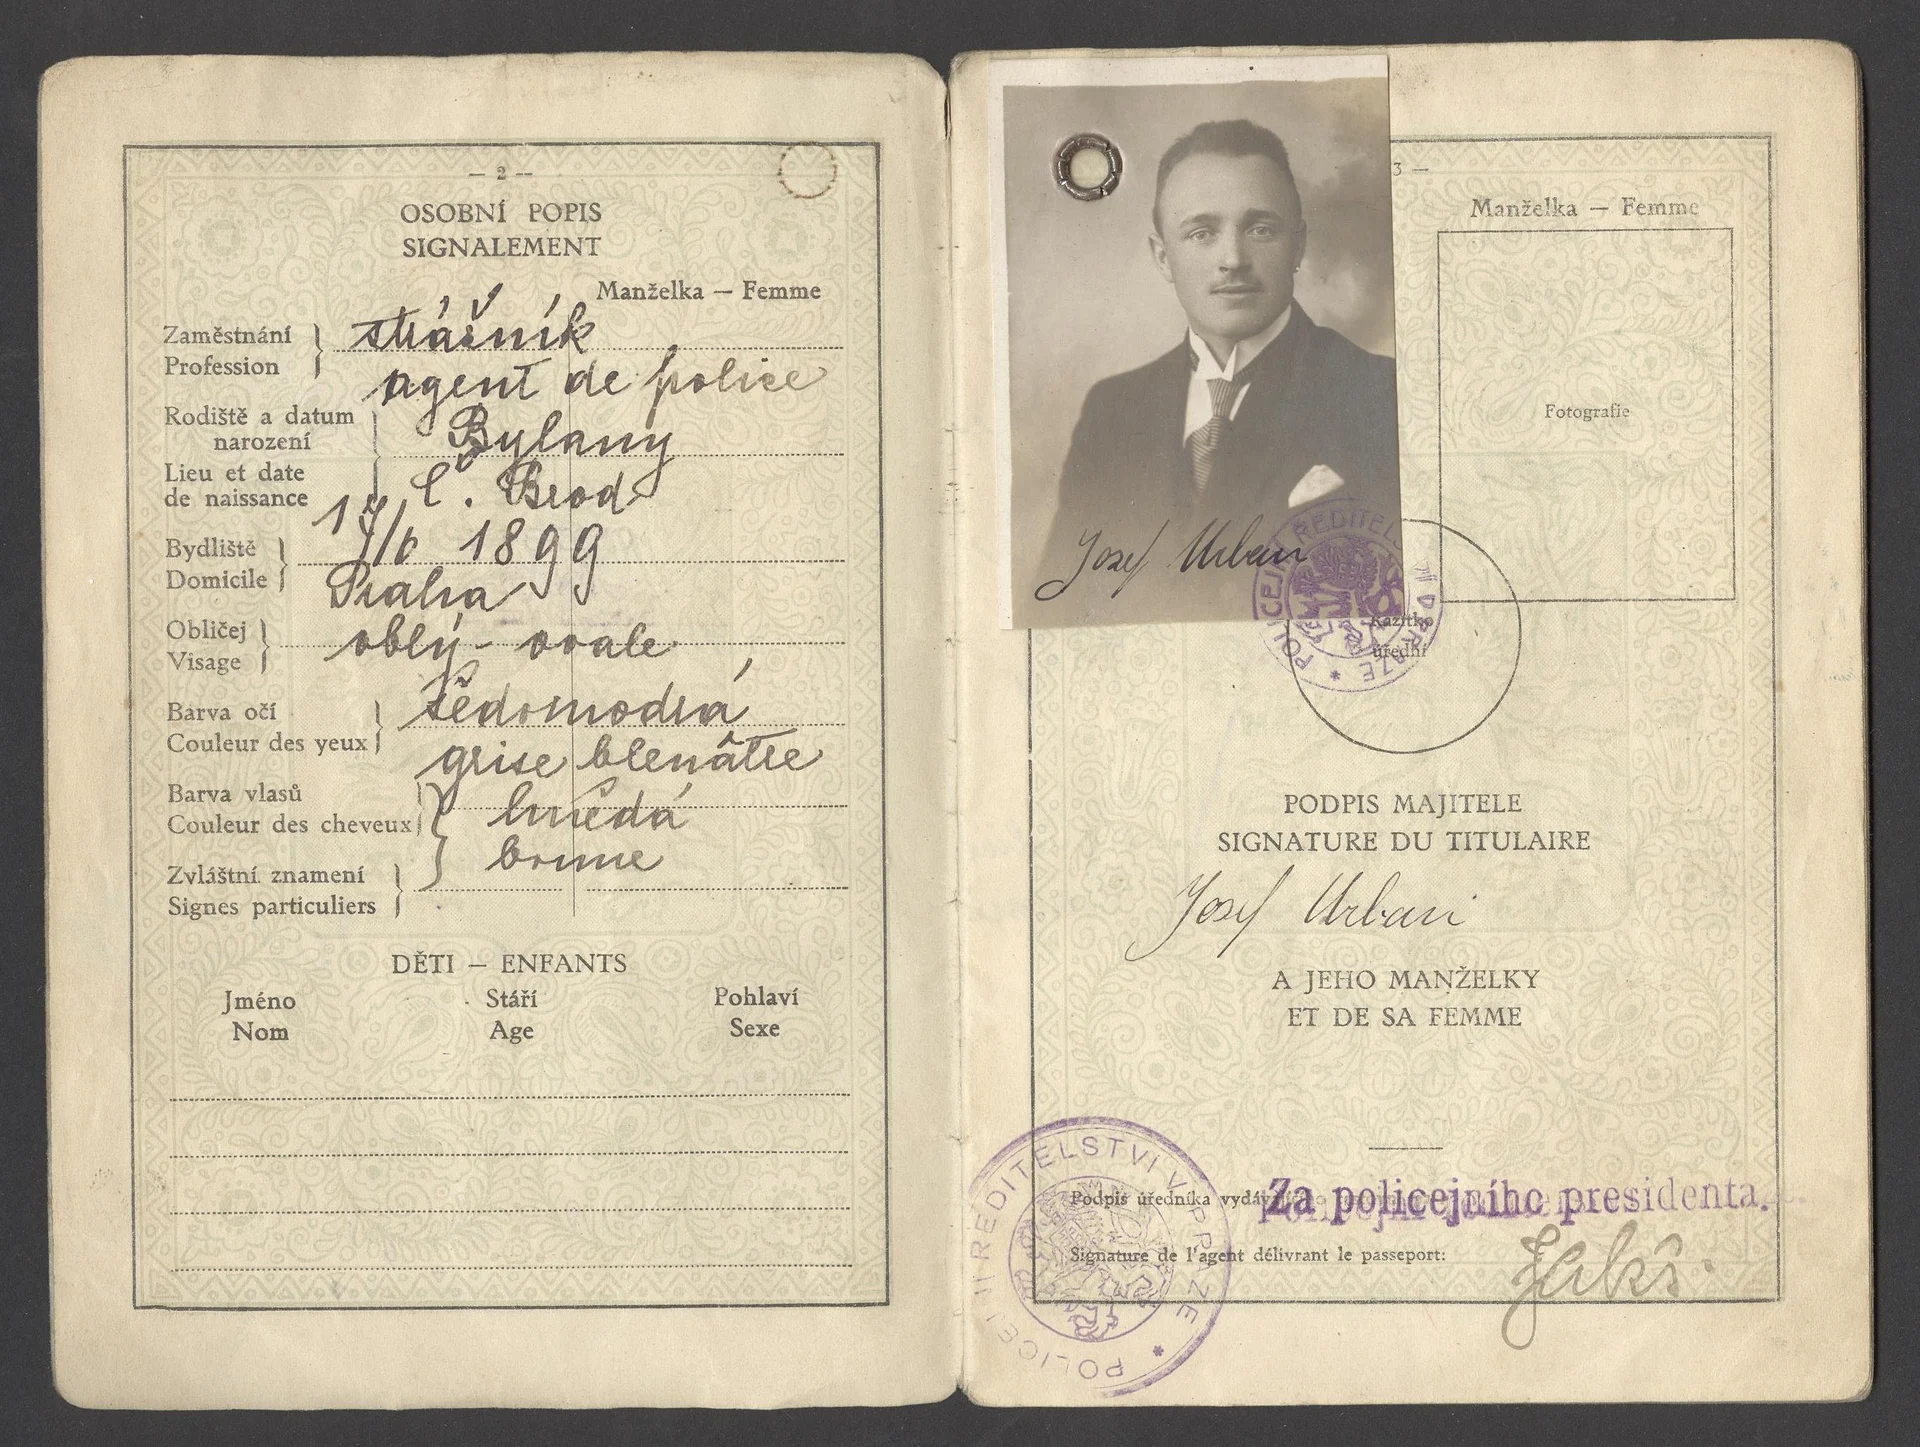 — 2 —
OSOBNÍ POPIS
SIGNALEMENT
Manželka — Femme
Zaměstnání
Profession
strážník
agent de police
Rodiště a datum
narození
Lieu et date
de naissance
Bylany
Č. Brod
17/6 1899
Bydliště
Domicile
Praha
Obličej
Visage
oblý - ovale
Barva očí
Couleur des yeux
šedomodrá
grise bleuâtre
Barva vlasů
Couleur des cheveux
hnědá
brune
Zvláštní znamení
Signes particuliers
DĚTI — ENFANTS
Jméno Stáří Pohlaví
Nom Age Sexe
3 —
Manželka — Femme
Fotografie
Josef Urban
POLICEJNÍ ŘEDITELSTVÍ V PRAZE
Razítko
úřední
PODPIS MAJITELE
SIGNATURE DU TITULAIRE
Josef Urban
A JEHO MANŽELKY
ET DE SA FEMME
Podpis úředníka
Za policejního presidenta.
Signature de l'agent délivrant le passeport:
POLICEJNÍ ŘEDITELSTVÍ V PRAZE